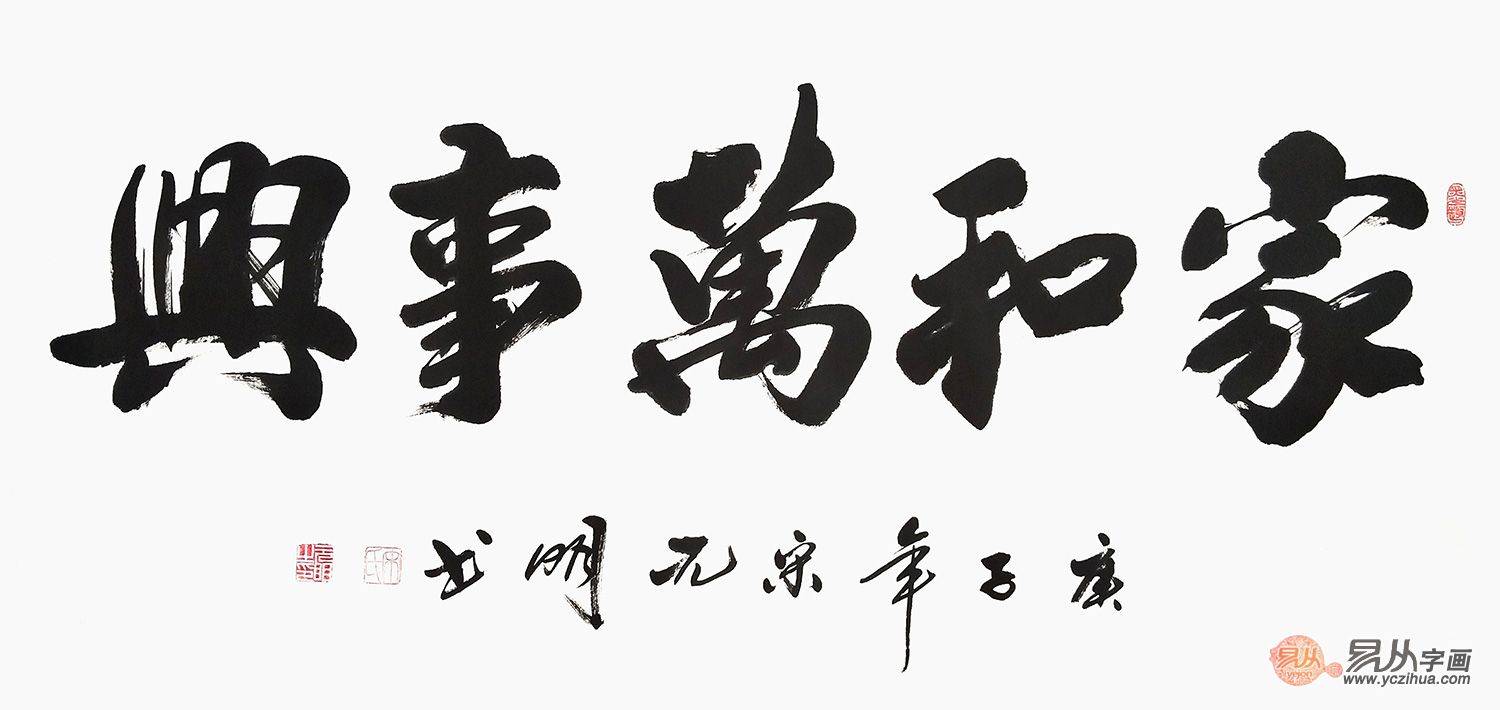 家和萬事興
庚子年宋元明书
易从字画
www.yczihua.com